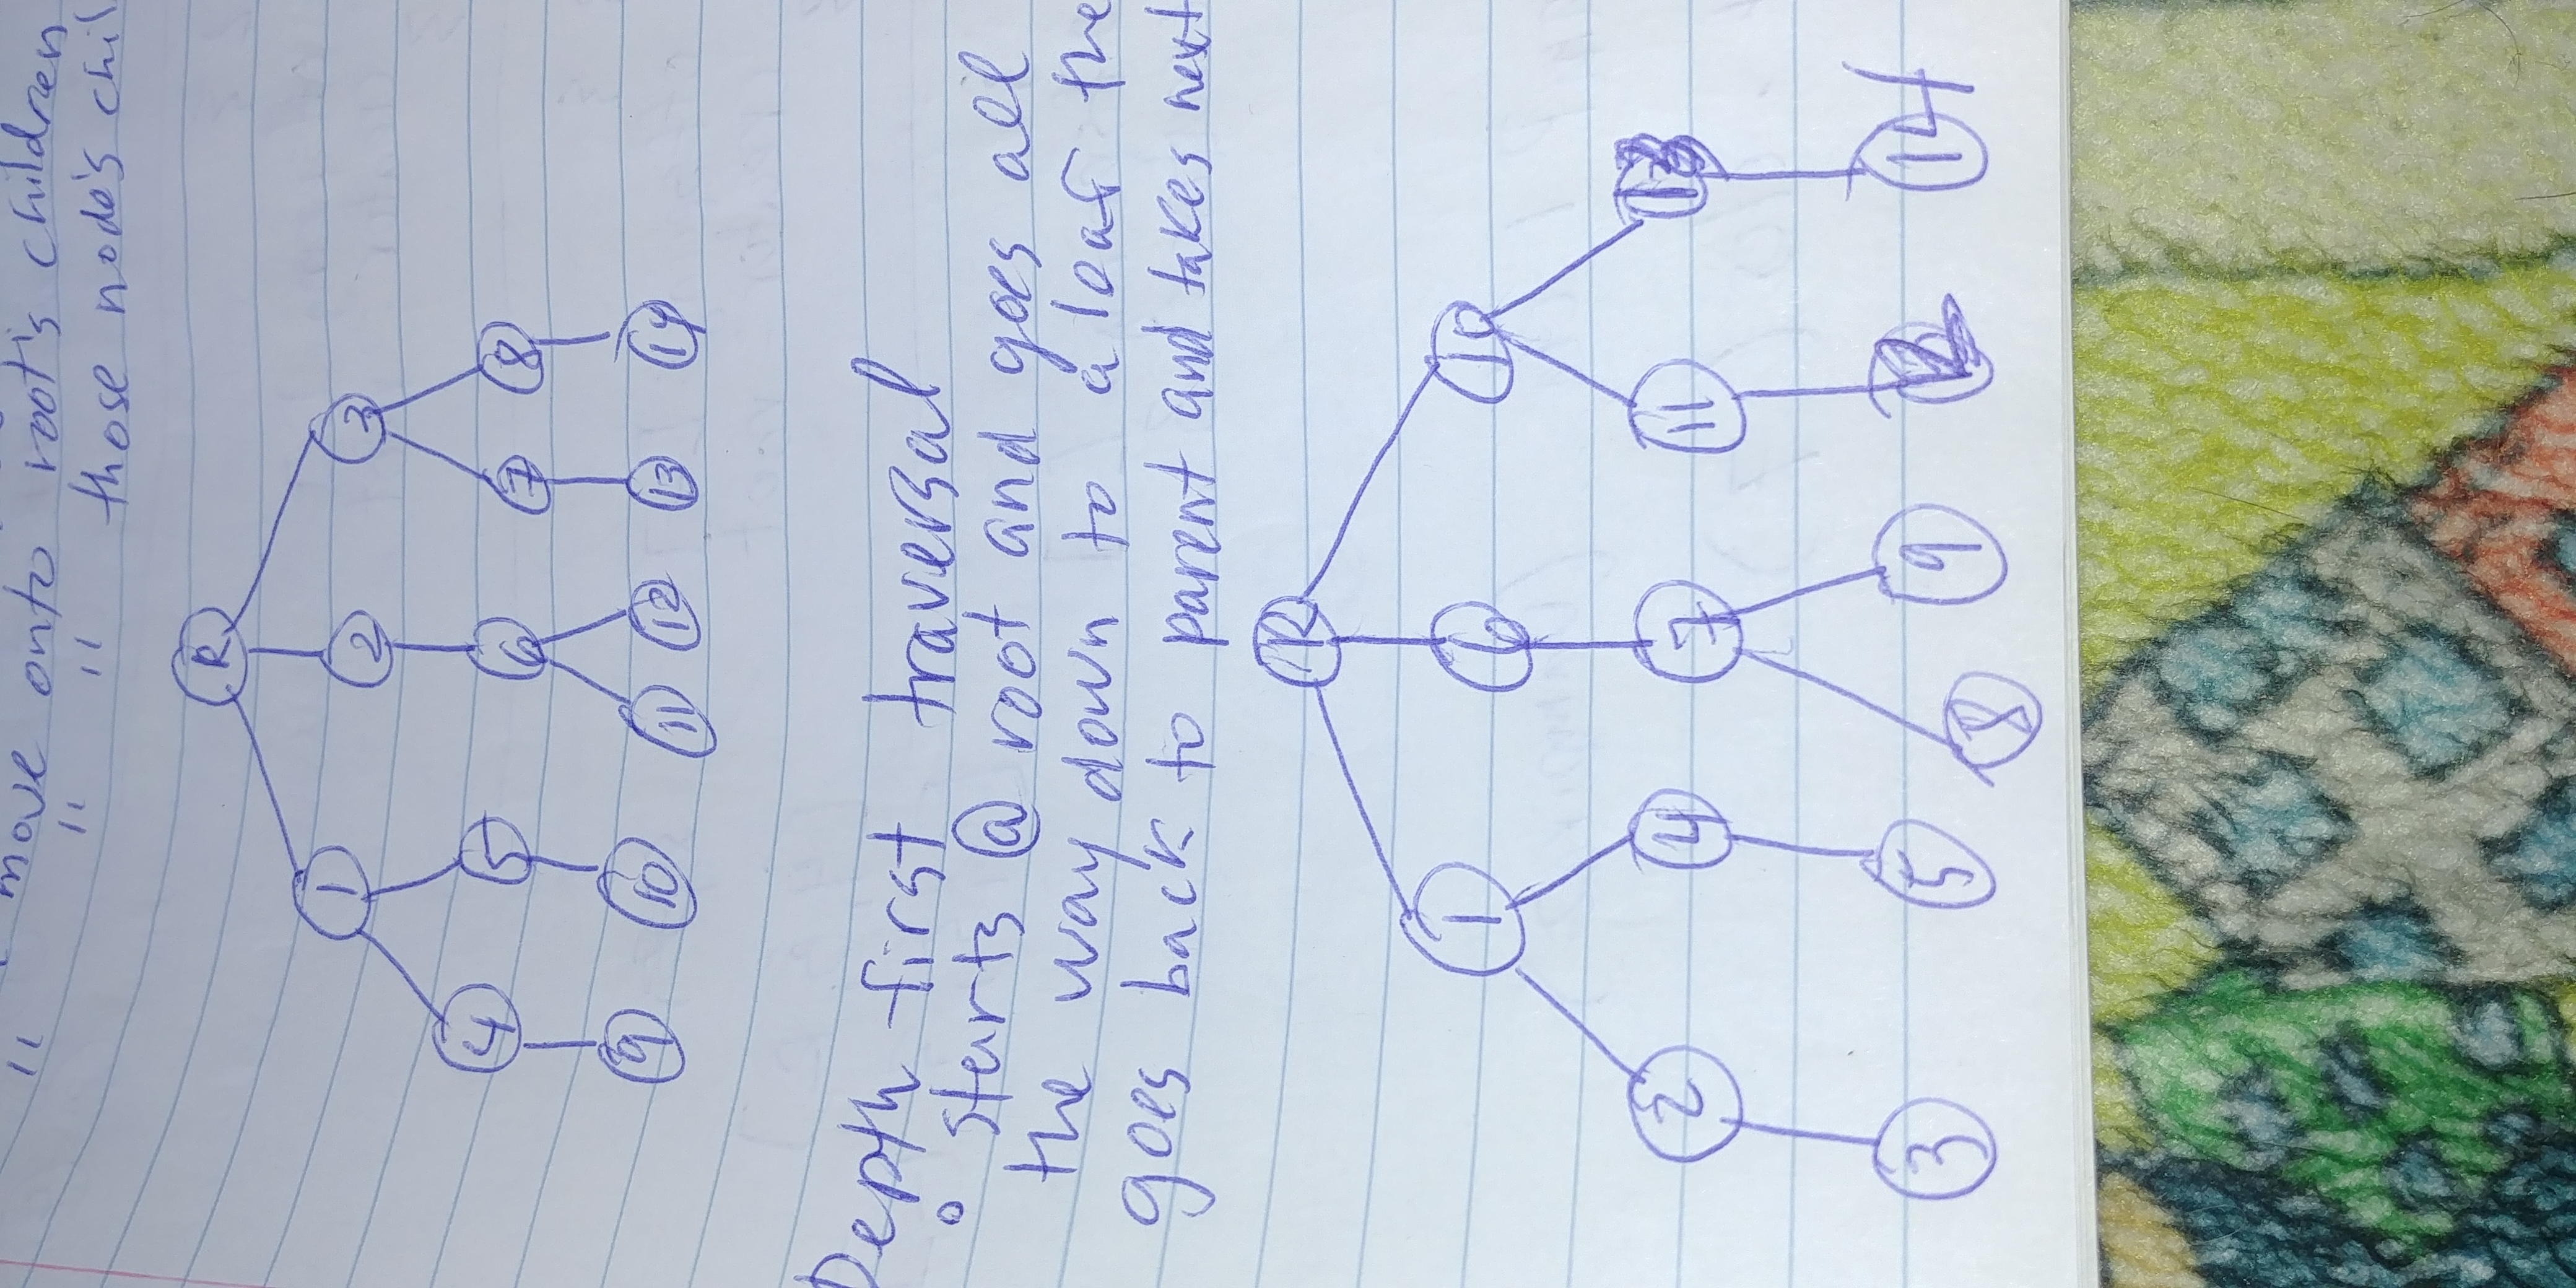 " move onto root's children
" " those node's chil
R
1 2 3
4 5 6 7 8
9 10 11 12 13 14
Depth first traversal
° starts @ root and goes all
the way down to a leaf the
goes back to parent and takes next
R
1 6 10
2 4 7 11 13
3 5 8 9 12 14